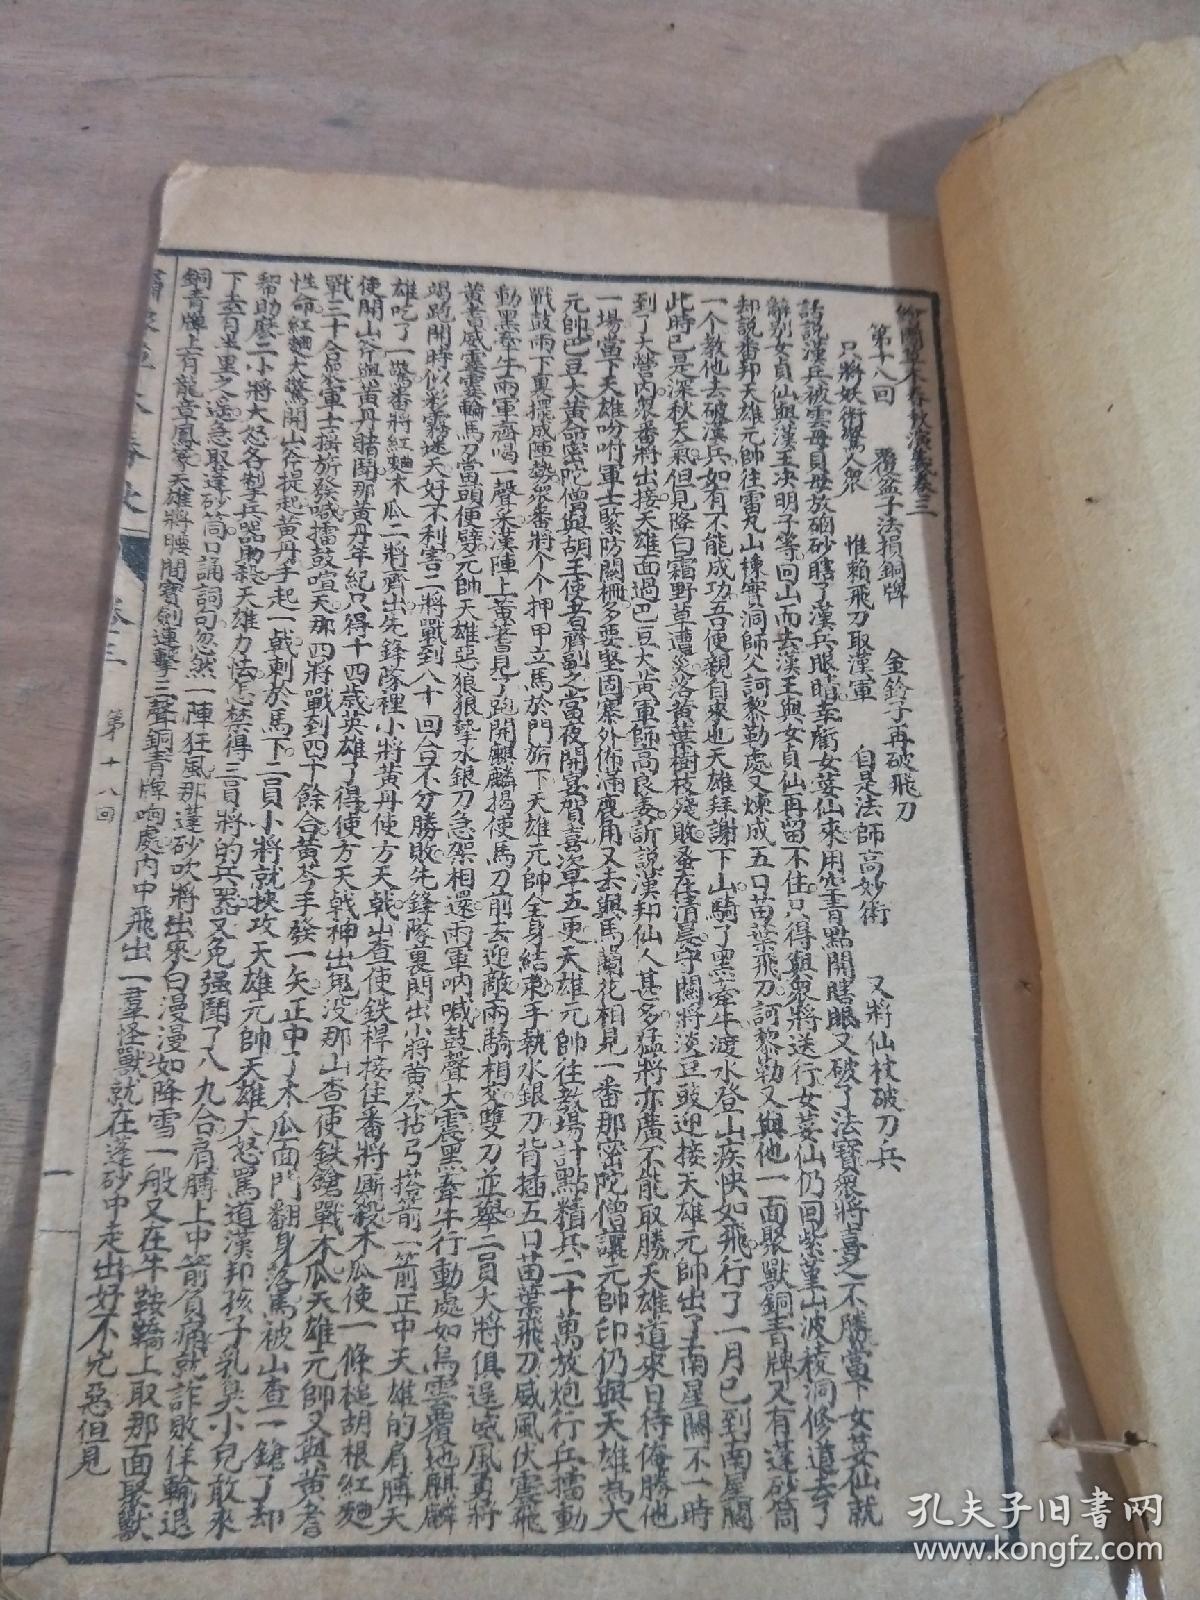 繪圖草木春秋演義卷三
第十八回 覆盆子法損銅牌 金鈴子再破飛刀
只將妖術驚人衆 惟賴飛刀取漢軍 自是法師高妙術 又將仙杖破刀兵
話說漢兵被雲母員母放硇砂瞎了漢兵眼睛幸虧女萎仙來用空青點開瞎眼又破了法寶衆將喜之不勝當下女萎仙就
辭别女貞仙與漢王決明子等回山而去漢王與女貞仙再留不住只得與衆將送行女萎仙仍回紫堇山波稜洞修道去了
却說番邦天雄元帥往雷丸山楝實洞師父訶黎勒處又煉成五口苗葉飛刀訶黎勒又與他一面聚獸銅青牌又有蓬砂筒
一个教他去破漢兵如有不能成功吾便親自來也天雄拜謝下山騎了黑牽牛渡水登山疾快如飛行了一月已到南星關
此時已是深秋天氣但見降白霜野草遭災落黄葉樹枝殘敗蚤在清晨守關將淡豆豉迎接天雄元帥出了南星關不一時
到了大營内衆番將出接天雄面過巴豆大黄軍師高良姜訴說漢邦仙人甚多猛將亦廣不能取勝天雄道來日待俺勝他
一場當下天雄吩咐軍士緊防關柵多要堅固寨外佈滿鹿角又去與馬蘭花相見一番那密陀僧讓元帥印仍與天雄為大
元帥巴豆大黄命密陀僧與胡王使者齊副之當夜開宴賀喜次早五更天雄元帥往教場計點精兵二十萬放炮行兵擂動
戰鼓雨下裏擺成陣勢衆番將个个押甲立馬於門旂下天雄元帥全身結束手執水銀刀背插五口苗葉飛刀威風伏震飛
動黑牽牛兩軍齊喝一聲采漢陣上黄耆見了跑開麒麟揭使馬刀前去迎敵兩騎相交雙刀並舉二員大將俱逞威風勇將
黄耆威靈靈輪馬刀當頭便劈元帥天雄惡狼狼擎水銀刀急架相還兩軍吶喊鼓聲大震黑牽牛行動處如烏雲覆地麒麟
竭跑開時似彩霧迷天好不利害二將戰到八十回合不分勝敗先鋒隊裏閃出小將黄芩拈弓搭箭一箭正中天雄的肩膊天
雄吃了一驚番將紅麯木瓜二將齊出先鋒隊裡小將黄丹使方天戟山查使鐵桿接住番將厮殺木瓜使一條槌胡根紅麯
使開山斧與黄丹賭鬪那黄丹年紀只得十四歲英雄了得使方天戟神出鬼没那山查使鉄鎗戰木瓜天雄元帥又與黄耆
戰三十合衆軍士搖旂發喊擂鼓喧天那四將戰到四十餘合黄芩手發一矢正中了木瓜面門翻身落馬被山查一鎗了却
性命紅麯大驚開山斧提起黄丹手起一戟刺於馬下二員小將就挾攻天雄元帥天雄大怒罵道漢邦孩子乳臭小兒敢來
帮助麽二小將大怒各掣兵器助殺天雄力怯怎禁得三員將的兵器又免强鬪了八九合肩膊上中箭負痛就詐敗佯輸退
下去百步里之遥急取蓬砂筒口誦詞句忽然一陣狂風那蓬砂吹將出來白漫漫如降雪一般又在牛鞍轎上取那面聚獸
銅青牌上有龍章鳳篆天雄將腰間寶劍連擊三聲銅青牌响處内中飛出一羣怪獸就在蓬砂中走出好不兇惡但見
草木春秋 卷三 第十八回 一
孔夫子旧书网
www.kongfz.com